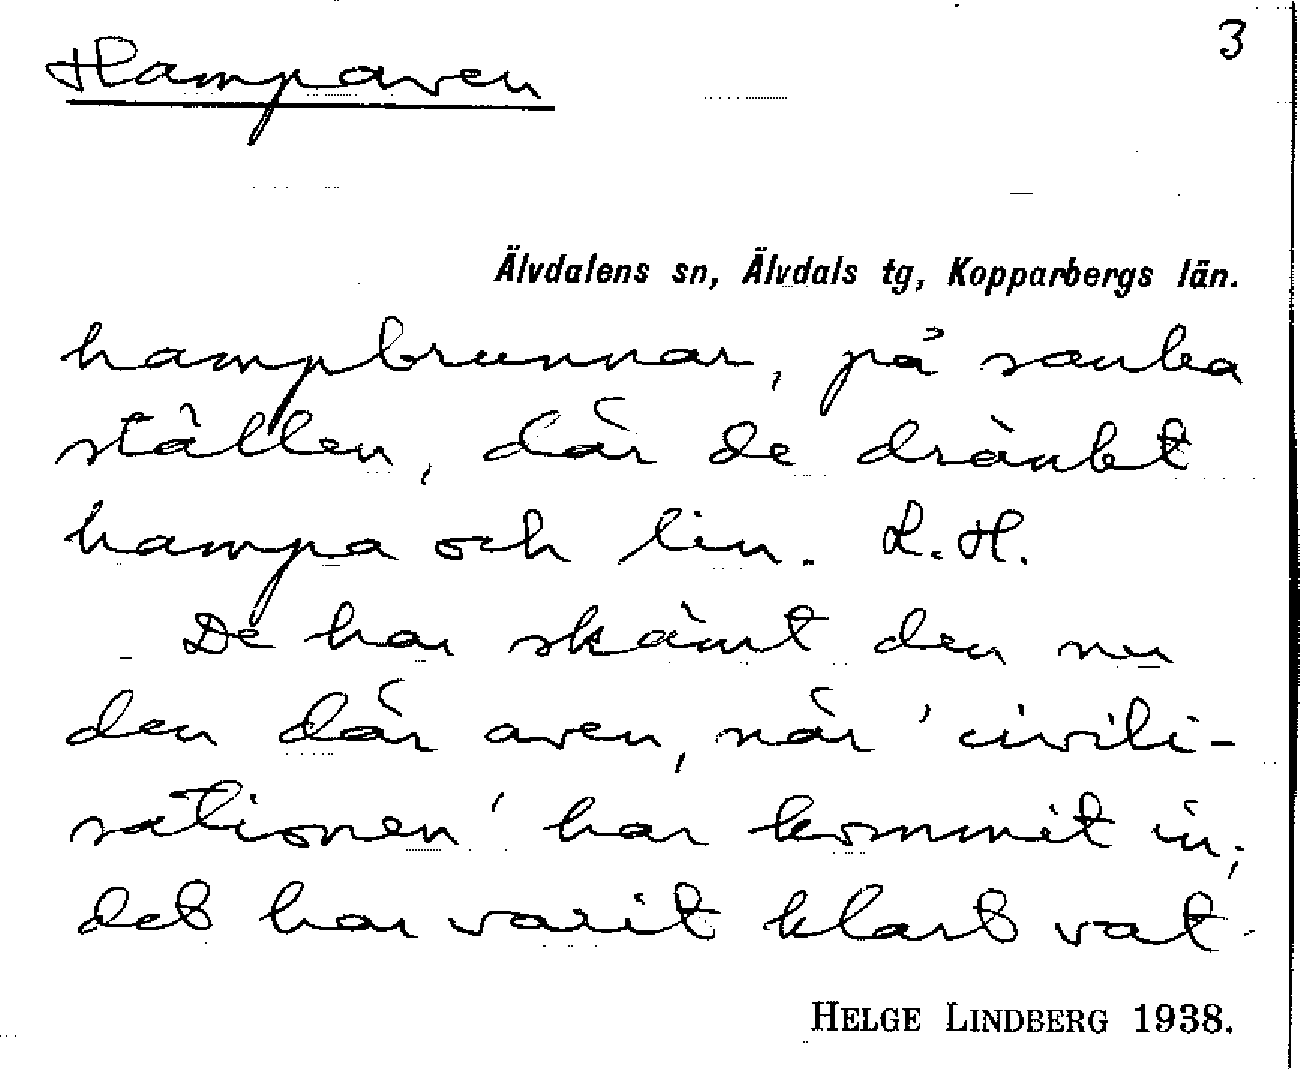 3
Hampaven
Älvdalens sn, Älvdals tg, Kopparbergs län.
hampbrunnar, på sanka
ställen, där de dränkt
hampa och lin. L.H.
De har skämt den nu
den där aven, när 'civili-
sationen' har kommit in;
det har varit klart vat-
HELGE LINDBERG 1938.